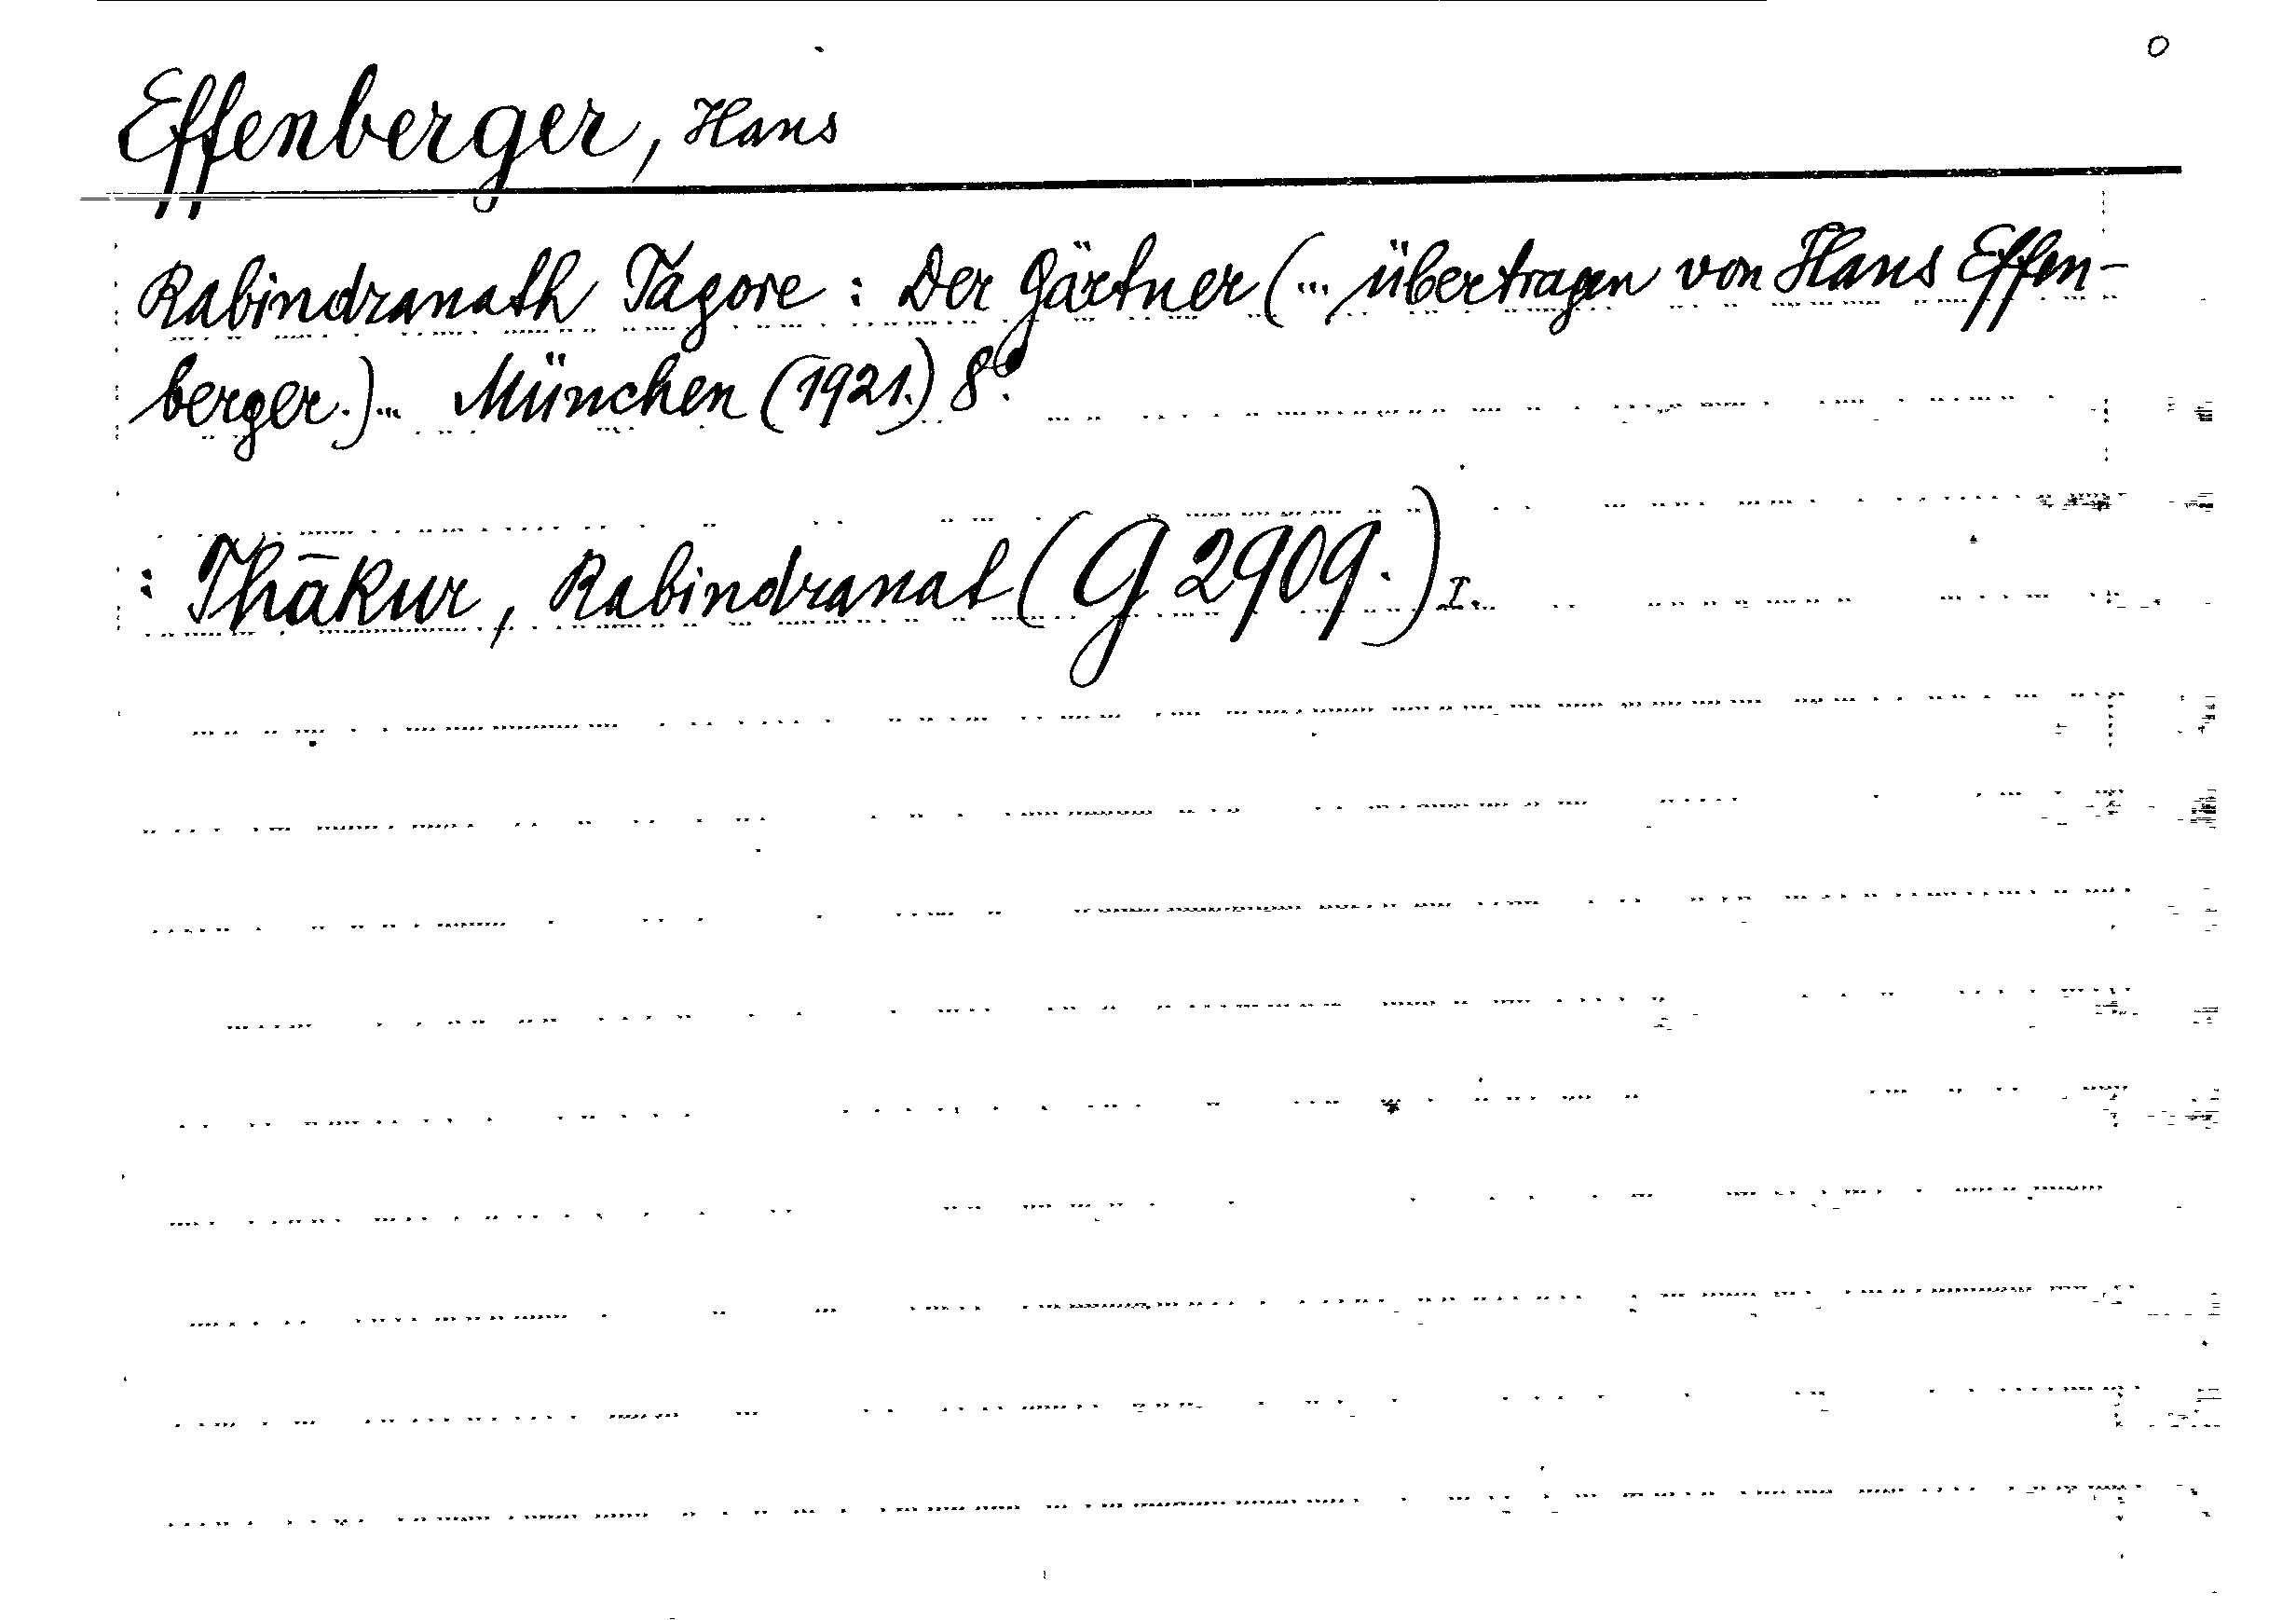 Effenberger, Hans
Rabindranath Tagore : Der Gärtner (... übertragen von Hans Effen-
berger.)... München (1921.) 8°.
: Thākur, Rabindranat (G 2909.) I.